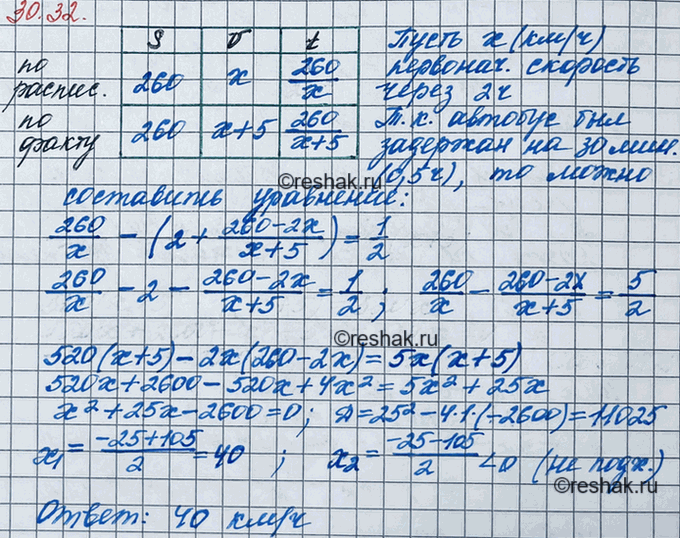 30.32.
S v t
по распис. 260 x 260/x
по факту 260 x+5 260/(x+5)
Пусть x (км/ч)
первонач. скорость
через 2ч
Т.к. автобус был
задержан на 30 мин.
(0,5ч), то можно
©reshak.ru
составить уравнение:
260/x - (2 + (260-2x)/(x+5)) = 1/2
260/x - 2 - (260-2x)/(x+5) = 1/2 ; 260/x - (260-2x)/(x+5) = 5/2
©reshak.ru
520(x+5) - 2x(260-2x) = 5x(x+5)
520x + 2600 - 520x + 4x² = 5x² + 25x
x² + 25x - 2600 = 0 ; Д = 25² - 4·1·(-2600) = 11025
x₁ = (-25+105)/2 = 40 ; x₂ = (-25-105)/2 < 0 (не подх.)
©reshak.ru
Ответ: 40 км/ч